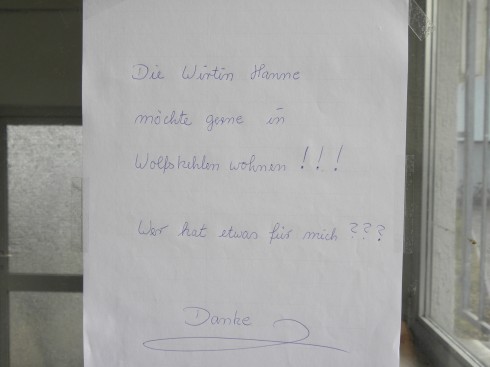 Die Wirtin Hanne
möchte gerne in
Wolfskehlen wohnen !!!
Wer hat etwas für mich ???
Danke